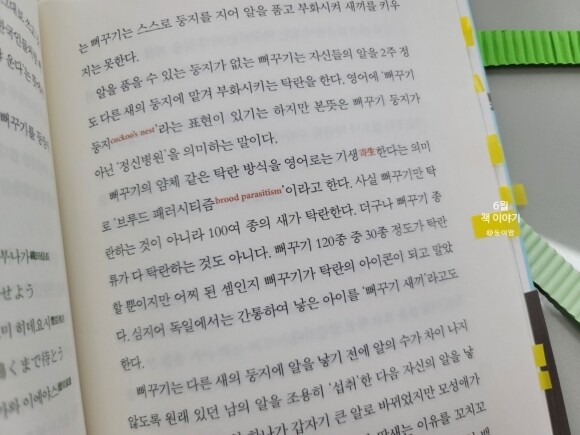 는 뻐꾸기는 스스로 둥지를 지어 알을 품고 부화시켜 새끼를 키우
지는 못한다.
알을 품을 수 있는 둥지가 없는 뻐꾸기는 자신들의 알을 2주 정
도 다른 새의 둥지에 맡겨 부화시키는 탁란을 한다. 영어에 '뻐꾸기
둥지cuckoo's nest'라는 표현이 있기는 하지만 본뜻은 뻐꾸기 둥지가
아닌 '정신병원'을 의미하는 말이다.
뻐꾸기의 얌체 같은 탁란 방식을 영어로는 기생寄生한다는 의미
로 '브루드 패러시티즘brood parasitism'이라고 한다. 사실 뻐꾸기만 탁
란하는 것이 아니라 100여 종의 새가 탁란한다. 더구나 뻐꾸기 종
류가 다 탁란하는 것도 아니다. 뻐꾸기 120종 중 30종 정도가 탁란
할 뿐이지만 어찌 된 셈인지 뻐꾸기가 탁란의 아이콘이 되고 말았
다. 심지어 독일에서는 간통하여 낳은 아이를 '뻐꾸기 새끼'라고도
한다.
뻐꾸기는 다른 새의 둥지에 알을 낳기 전에 알의 수가 차이 나지
않도록 원래 있던 남의 알을 조용히 '섭취'한 다음 자신의 알을 낳
하나가 갑자기 큰 알로 바뀌었지만 모성애가
이유를 꼬치꼬
뻐꾸기를
せよう
미 히데요시
くまで待とう
와 이에야스
6월
책 이야기